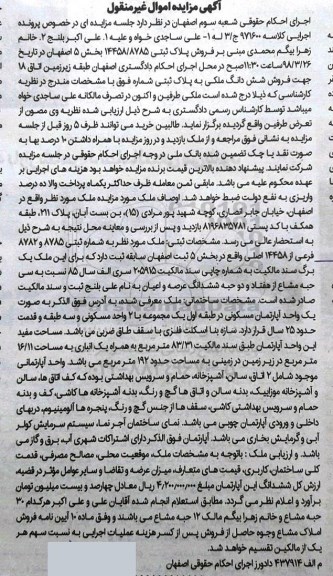 آگهی مزایده اموال غیرمنقول
اجرای احکام حقوقی شعبه سوم اصفهان در نظر دارد جلسه مزایده ای در خصوص پرونده
اجرایی کلاسه ۹۷۱۶۰۰ ج/۳ له ۱- علی ساجدی خواه و علیه ۱. علی اکبر بلنج ۲. خانم
زهرا بیگم محمدی مبنی بر فروش پلاک ثبتی ۱۴۴۵۸/۸۷۸۵ بخش ۵ اصفهان در تاریخ
۹۸/۳/۲۶ ساعت ۱۱:۳۰ صبح در محل اجرای احکام دادگستری اصفهان طبقه زیرزمین اتاق ۱۸
جهت فروش شش دانگ ملکی به پلاک ثبتی شماره فوق با مشخصات مندرج در نظریه
کارشناسی که ذیلا درج شده است ملکی طرفین و اکنون در تصرف مالکانه علی ساجدی خواه
میباشد توسط کارشناس رسمی دادگستری به شرح ذیل ارزیابی شده نظریه وی مصون از
تعرض طرفین واقع گردیده برگزار نماید. طالبین خرید می توانند ظرف ۵ روز قبل از جلسه
مزایده به نشانی فوق مراجعه و از ملک بازدید و در روز مزایده با همراه داشتن ۱۰ درصد بها به
صورت نقد یا چک تضمین شده بانک ملی در وجه اجرای احکام حقوقی در جلسه مزایده
شرکت نمایند. پیشنهاد دهنده بالاترین قیمت برنده مزایده خواهد بود هزینه های اجرایی بر
عهده محکوم علیه می باشد. مابقی ثمن معامله ظرف حداکثر یکماه پرداخت والا ده درصد
واریزی به نفع دولت ضبط خواهد شد. اوصاف ملک مورد مزایده ملک مورد نظر واقع در
اصفهان، خیابان جابر انصاری، کوچه شهید پور مرادی (۱۵) بن بست آبان، پلاک ۲۱۱، طبقه
همکف با کد پستی ۸۱۹۶۸۳۵۷۸۱ بازدید و پس از بررسی و معاینه محل نتیجه به شرح ذیل
به استحضار عالی می رسد. مشخصات ثبتی: ملک مورد نظر به شماره ثبتی ۸۷۸۵ و ۸۷۸۲
فرعی از ۱۴۴۵۸ اصلی واقع در بخش ۵ ثبت اصفهان سابقه ثبت دارد که برای این ملک یک
برگ سند مالکیت به شماره چاپی سند مالکیت ۲۰۵۹۱۵ سری الف سال ۸۵ نسبت به سی
حبه مشاع از هفتاد و دو حبه ششدانگ عرصه و اعیان به نام علی بلنج ثبت و سند مالکیت
صادر شده است. مشخصات ساختمانی: ملک معرفی شده، به آدرس فوق الذکر به صورت
یک واحد آپارتمان مسکونی در طبقه اول یک مجموعه با ۲ واحد مسکونی و سه طبقه و قدمت
حدود ۲۵ سال قرار دارد. سازه بنا اسکلت فلزی با سقف طاق ضربی می باشد. مساحت مفید
این واحد آپارتمان طبق سند مالکیت ۸۳/۳۱ متر مربع به همراه یک انباری به مساحت ۱۶/۱۱
متر مربع در زیر زمین در زمینی به مساحت حدود ۱۹۲ متر مربع می باشد. واحد آپارتمانی
موجود شامل ۲ اتاق، سالن، آشپزخانه، حمام و سرویس بهداشتی بوده که کف اتاق ها، سالن
و آشپزخانه موزاییک، بدنه سالن و اتاق ها گچ و رنگ، بدنه آشپزخانه ها کاشی، کف و بدنه
حمام و سرویس بهداشتی کاشی، سقف ها از جنس گچ و رنگ، پنجره ها آلومینیوم، دربهای
داخلی و ورودی آپارتمان چوبی می باشد. نمای ساختمان آجر نما، سیستم سرمایش کولر
آبی و گرمایش بخاری می باشد. آپارتمان فوق الذکر دارای اشتراکات شهری آب، برق و گاز می
باشد. و ارزیابی ملک : باتوجه به مشخصات ملک، موقعیت محلی، مصالح مصرفی، قدمت
کلی ساختمان، کاربری، قیمت های متعارف، میزان عرضه و تقاضا و سایر عوامل مؤثر در قضیه،
ارزش کل ششدانگ این آپارتمان مبلغ ۴/۲۰۰/۰۰۰/۰۰۰ ریال معادل چهارصد و بیست میلیون تومان
برآورد و اعلام نظر می گردد. مطابق استعلام انجام شده آقایان علی و علی اکبر هرکدام ۳۰
حبه مشاع و خانم زهرا بیگم مالک ۱۲ حبه مشاع می باشند و وفق ماده ۱۰ آیین نامه فروش
املاک مشاع وجوه حاصل از فروش پس از کسر هزینه عملیات اجرایی به نسبت سهم هر
یک از مالکین تقسیم خواهد شد.
م الف ۴۳۷۹۱۴ دادورز اجرای احکام حقوقی اصفهان